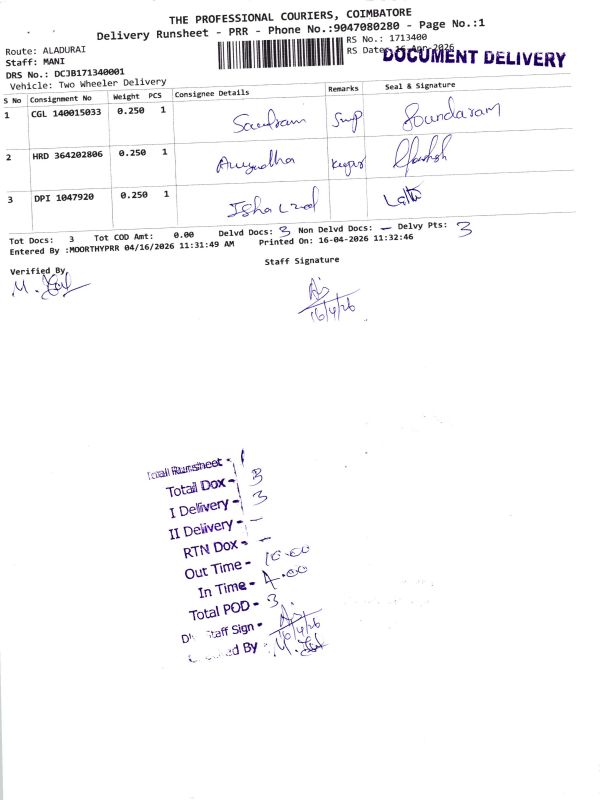 THE PROFESSIONAL COURIERS, COIMBATORE
Delivery Runsheet - PRR - Phone No.:9047080280 - Page No.:1
Route: ALADURAI
RS No.: 1713400
Staff: MANI
RS Date: 16-Apr-2026
DOCUMENT DELIVERY
DRS No.: DCJB171340001
Vehicle: Two Wheeler Delivery
S No Consignment No Weight PCS Consignee Details Remarks Seal & Signature
1 CGL 140015033 0.250 1 Soundaram
2 HRD 364202806 0.250 1
3 DPI 1047920 0.250 1 Isha Lalti
Tot Docs: 3 Tot COD Amt: 0.00 Delvd Docs: 3 Non Delvd Docs: — Delvy Pts: 3
Entered By :MOORTHYPRR 04/16/2026 11:31:49 AM Printed On: 16-04-2026 11:32:46
Verified By
Staff Signature
16/4/26
Total Runsheet - 1
Total Dox - 3
I Delivery - 3
II Delivery - —
RTN Dox - —
Out Time - 10.00
In Time - 4.00
Total POD - 3
Staff Sign -
16/4/26
By :